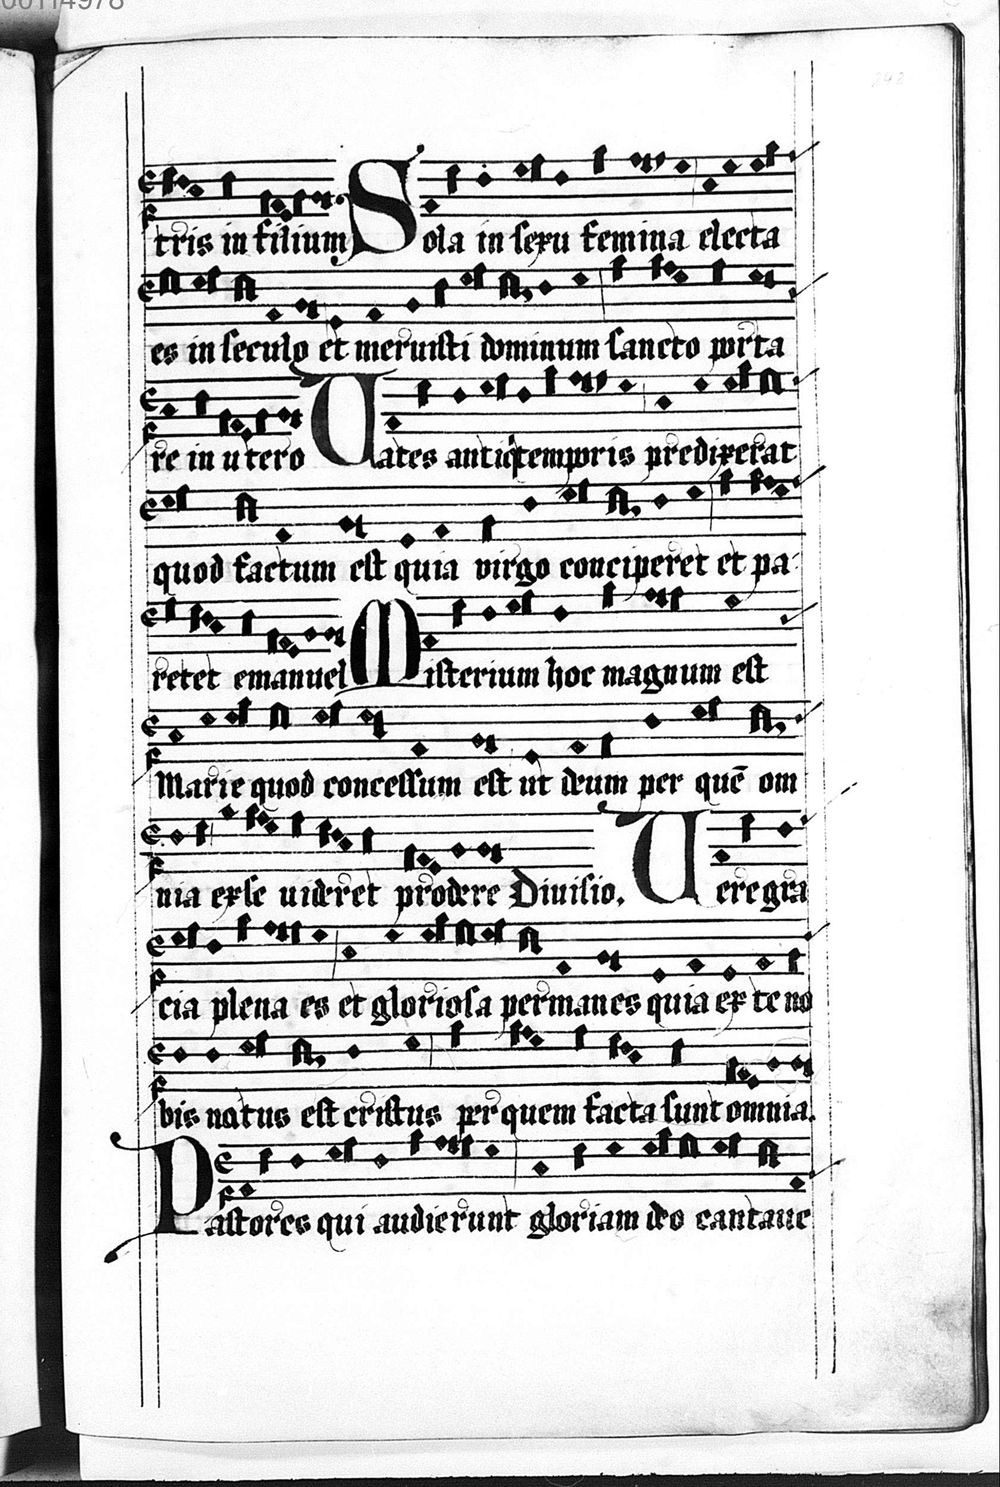 00114978
242
tris in filium Sola in sexu femina electa
es in seculo et meruisti dominum sancto porta
re in utero Uates antiq temporis predixerat
quod factum est quia virgo conciperet et pa-
retet emanuel Misterium hoc magnum est
Marie quod concessum est ut deum per quē om
nia ex se uideret prodere Divisio. Uere gra
cia plena es et gloriosa permanes quia ex te no
bis natus est cristus per quem facta sunt omnia.
Pastores qui audierunt gloriam deo cantaue